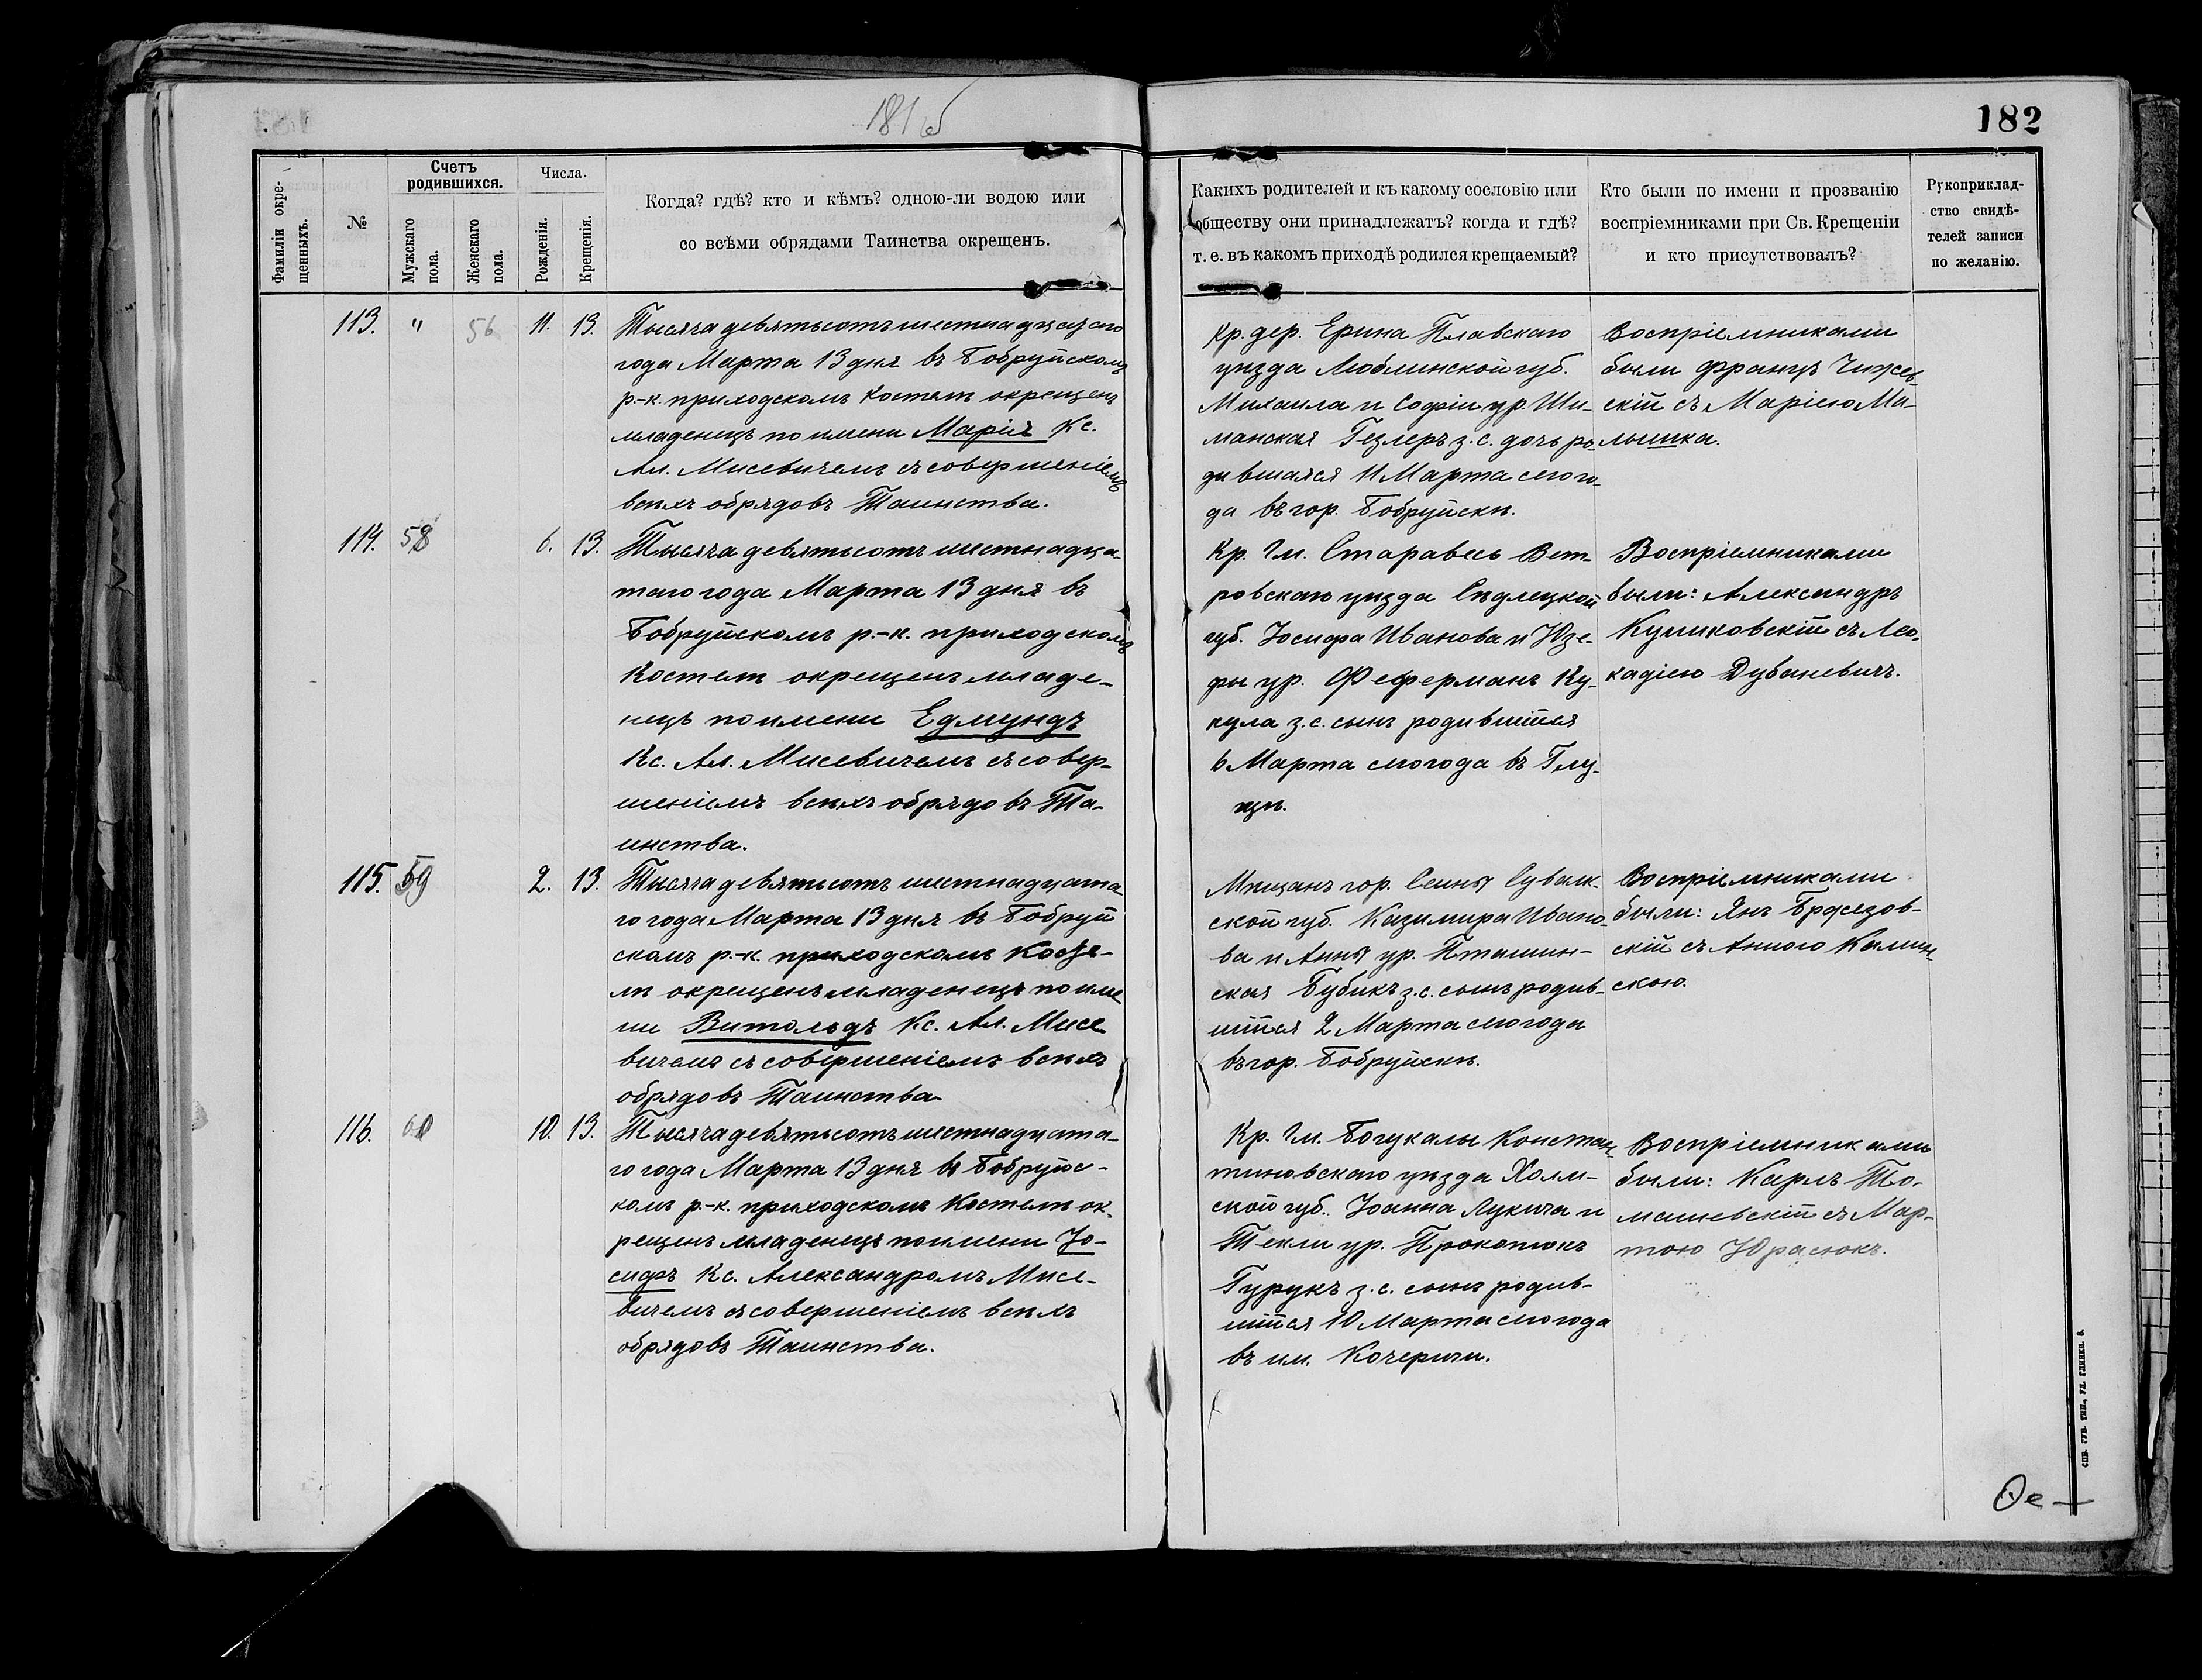 181 об
182
Фамиліи окре-
щенныхъ.
№
Счетъ
родившихся.
Мужскаго
пола.
Женскаго
пола.
Числа.
Рожденія.
Крещенія.
Когда? гдѣ? кто и кѣмъ? одною-ли водою или
со всѣми обрядами Таинства окрещенъ.
Какихъ родителей и къ какому сословію или
обществу они принадлежатъ? когда и гдѣ?
т. е. въ какомъ приходѣ родился крещаемый?
Кто были по имени и прозванію
воспріемниками при Св. Крещеніи
и кто присутствовалъ?
Рукоприклад-
ство свидѣ-
телей записи
по желанію.
113. " 56 11. 13.
Тысяча девятьсотъ шестнадцатаго
года Марта 13 дня въ Бобруйскомъ
р.-к. приходскомъ костелѣ окрещенъ
младенецъ по имени Марія Кс.
Ал. Мисевичемъ съ совершеніемъ
всѣхъ обрядовъ Таинства.
Кр. дер. Ерина Плавскаго
уѣзда Люблинской губ.
Михаила и Софіи ур. Ши-
манская Гецлеръ з. с. дочь ро-
дившаяся 11 Марта с͠го го-
да въ гор. Бобруйскѣ.
Воспріемниками
были Францъ Чижев-
скій съ Маріею Ма-
лышка.
114. 58 6. 13.
Тысяча девятьсотъ шестнадца-
таго года Марта 13 дня въ
Бобруйскомъ р.-к. приходскомъ
Костелѣ окрещенъ младе-
нецъ по имени Едмундъ
Кс. Ал. Мисевичемъ съ совер-
шеніемъ всѣхъ обрядовъ Та-
инства.
Кр. Гм. Старавесь Вет-
ровскаго уѣзда Сѣдлецкой
губ. Іосифа Иванова и Юзе-
фы ур. Феферманъ Ку-
кула з. с. сынъ родившійся
6 Марта сего года въ Глу-
цѣ.
Воспріемниками
были: Александръ
Куликовскій съ Лео-
кадіею Дубаневичъ.
115. 59 2. 13.
Тысяча девятьсотъ шестнадцата
го года Марта 13 дня въ Бобруй
скомъ р.-к. приходскомъ Косте-
лѣ окрещенъ младенецъ по име
ни Витольдъ Кс. Ал. Мисе
вичемъ съ совершеніемъ всѣхъ
обрядовъ Таинства
Мѣщанъ гор. Сейны Сувалк-
ской губ. Казимира Ивано-
ва и Анны ур. Пташин-
ская Бубикъ з. с. сынъ родив-
шійся 2 Марта сего года
въ гор. Бобруйскѣ.
Воспріемниками
были: Янъ Бржезов-
скій съ Анною Камин-
скою.
116. 60 10. 13.
Тысяча девятьсотъ шестнадцата-
го года Марта 13 дня въ Бобруйс-
комъ р.-к. приходскомъ Костелѣ ок-
рещенъ младенецъ по имени Іо-
сифъ Кс. Александромъ Мисе-
вичемъ съ совершеніемъ всѣхъ
обрядовъ Таинства.
Кр. Гм. Богукалы Констан-
тиновскаго уѣзда Холм-
ской губ. Іоанна Лукича и
Текли ур. Прокопюкъ
Гурукъ з. с. сынъ родив-
шійся 10 Марта сего года
въ им. Кочеричи.
Воспріемниками
были: Карлъ То-
машевскій съ Мар-
тою Юрасюкъ.
СПБ. ГУБ. ТИП., УЛ. ГЛИНКИ, 6.